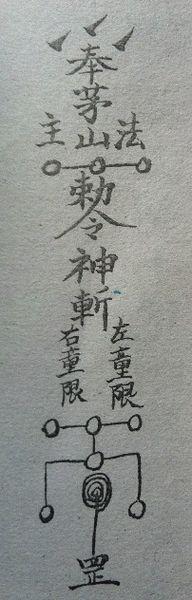 奉
茅
主山法
勅令
神
斬
左童限
右童限
罡